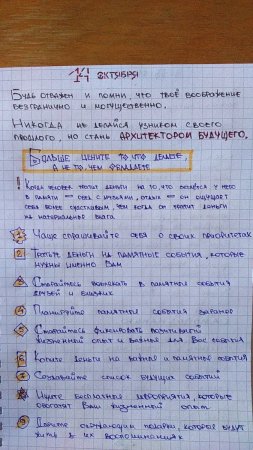 14 октября
Будь отважен и помни, что твоё воображение
безгранично и могущественно.
Никогда не делайся узником своего
прошлого, но стань АРХИТЕКТОРОМ БУДУЩЕГО.
Больше цените то, что делаете,
а не то, чем владеете
! Когда человек тратит деньги на то, что останется у него
в памяти – обед с друзьями, отдых – он ощущает
себя более счастливым, чем когда он тратит деньги
на материальные блага
1 Чаще спрашивайте себя о своих приоритетах
2 Тратьте деньги на памятные события, которые
нужны именно Вам
3 Старайтесь вовлекать в памятные события
друзей и близких
4 Планируйте памятные события заранее
5 Старайтесь фиксировать позитивный
жизненный опыт и важные для Вас события
6 Копите деньги на важные и памятные события
7 Создавайте список будущих событий
8 Ищите бесплатные мероприятия, которые
обогатят Ваш жизненный опыт
9 Дарите окружающим подарки, которые будут
жить в их воспоминаниях